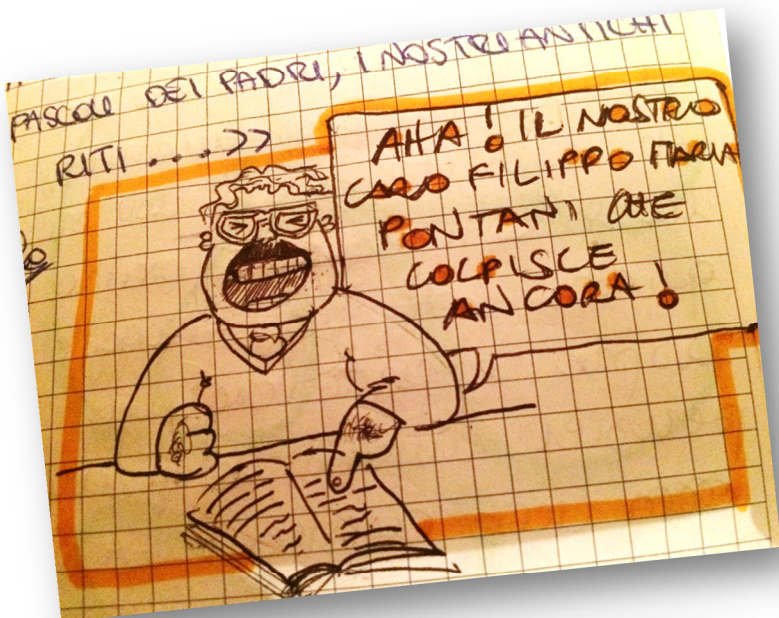 PASCOLI DEI PADRI, I NOSTRI ANTICHI
RITI....>>
AHA! IL NOSTRO
CARO FILIPPO MARIA
PONTANI CHE
COLPISCE
ANCORA!